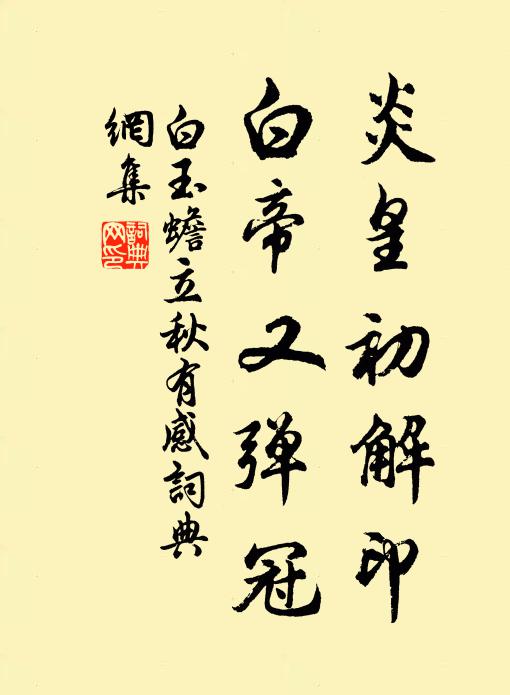 炎皇初解印
白帝又弹冠
白玉蟾立秋有感词典
網集
詞典网印